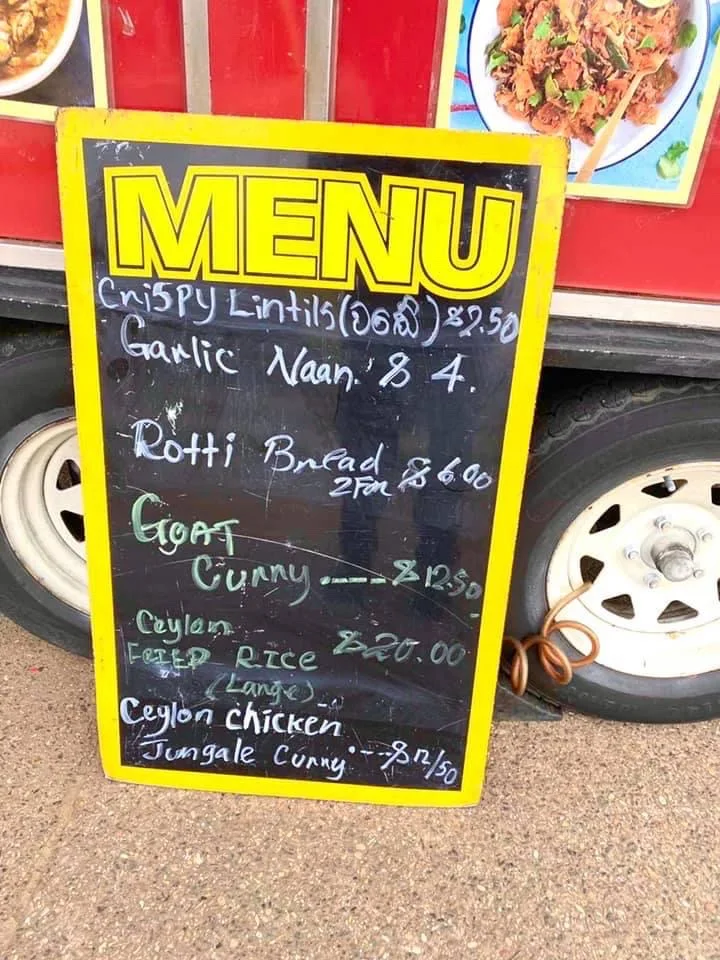 MENU
Crispy Lintils (වඩේ) $2.50
Garlic Naan. $ 4.
Rotti Bread $6.00
2 For
GOAT
Curry .---- $12.50
Ceylan
FRIED RICE $20.00
(Large)
Ceylon chicken
Jungale Curry .--- $12/50